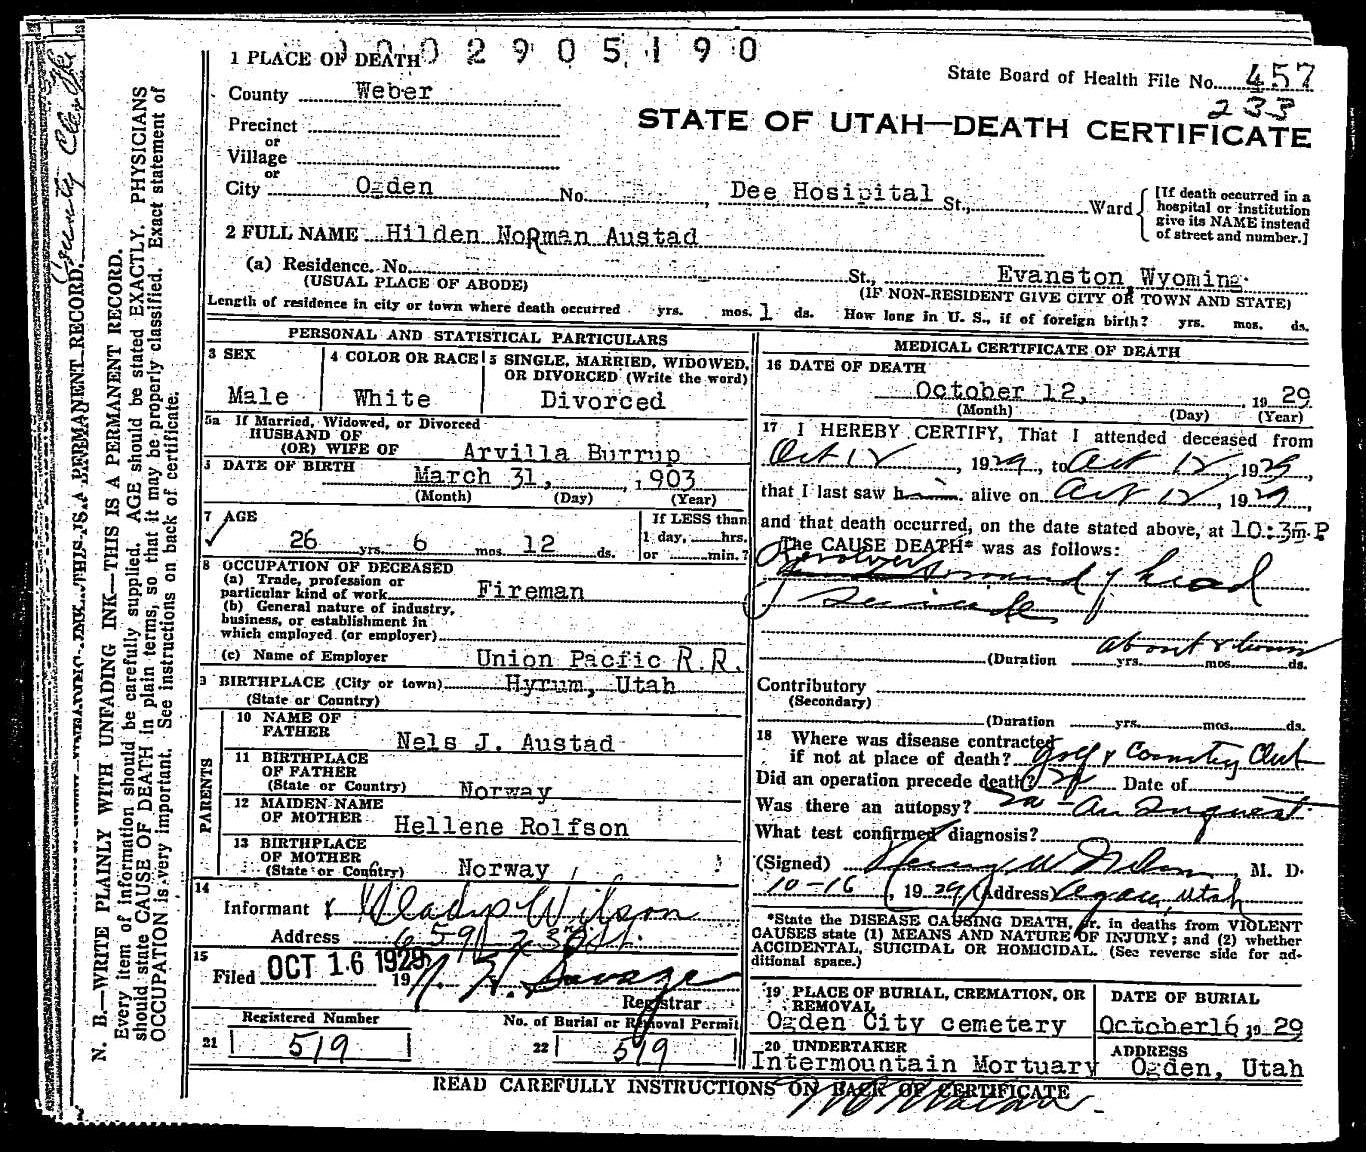 0002905190
1 PLACE OF DEATH
State Board of Health File No. 457
233
County Weber
STATE OF UTAH—DEATH CERTIFICATE
Precinct
or
Village
or
City Ogden No. Dee Hosipital St., Ward
[If death occurred in a hospital or institution give its NAME instead of street and number.]
2 FULL NAME Hilden NoRman Austad
(a) Residence. No. St., Evanston, Wyoming
(USUAL PLACE OF ABODE) (IF NON-RESIDENT GIVE CITY OR TOWN AND STATE)
Length of residence in city or town where death occurred yrs. mos. 1 ds. How long in U. S., if of foreign birth? yrs. mos. ds.
PERSONAL AND STATISTICAL PARTICULARS
3 SEX
Male
4 COLOR OR RACE
White
5 SINGLE, MARRIED, WIDOWED,
OR DIVORCED (Write the word)
Divorced
5a If Married, Widowed, or Divorced
HUSBAND OF
(OR) WIFE OF Arvilla Burrup
DATE OF BIRTH
March 31, 1903
(Month) (Day) (Year)
7 AGE
26 yrs. 6 mos. 12 ds.
If LESS than
1 day, hrs.
or min.?
8 OCCUPATION OF DECEASED
(a) Trade, profession or
particular kind of work Fireman
(b) General nature of industry,
business, or establishment in
which employed (or employer)
(c) Name of Employer Union Pacfic R.R.
9 BIRTHPLACE (City or town) Hyrum, Utah
(State or Country)
PARENTS
10 NAME OF
FATHER Nels J. Austad
11 BIRTHPLACE
OF FATHER
(State or Country) Norway
12 MAIDEN NAME
OF MOTHER Hellene Rolfson
13 BIRTHPLACE
OF MOTHER
(State or Country) Norway
14
Informant Gladys Wilson
Address 659 23rd St.
15
Filed OCT 16 1929 19
Registrar
Registered Number
21 519
No. of Burial or Removal Permit
22 519
MEDICAL CERTIFICATE OF DEATH
16 DATE OF DEATH
October 12, 1929
(Month) (Day) (Year)
17 I HEREBY CERTIFY, That I attended deceased from
Oct 12, 1929, to Oct 12, 1929,
that I last saw him alive on Oct 12, 1929,
and that death occurred, on the date stated above, at 10:35m.P
The CAUSE DEATH* was as follows:
Revolver wound of head
Suicide
about 8 hours
(Duration yrs. mos. ds.
Contributory
(Secondary)
(Duration yrs. mos. ds.
18 Where was disease contracted
if not at place of death? Golf & Country Club
Did an operation precede death? No Date of
Was there an autopsy? No - An Inquest
What test confirmed diagnosis?
(Signed) Henry W Nelson, M. D.
10-16, 1929 (Address) Utah
*State the DISEASE CAUSING DEATH, or, in deaths from VIOLENT
CAUSES state (1) MEANS AND NATURE OF INJURY; and (2) whether
ACCIDENTAL, SUICIDAL OR HOMICIDAL. (See reverse side for ad-
ditional space.)
19 PLACE OF BURIAL, CREMATION, OR
REMOVAL
Ogden City cemetery
DATE OF BURIAL
October16, 1929
20 UNDERTAKER
Intermountain Mortuary
ADDRESS
Ogden, Utah
READ CAREFULLY INSTRUCTIONS ON BACK OF CERTIFICATE
N. B.—WRITE PLAINLY WITH UNFADING INK—THIS IS A PERMANENT RECORD.
Every item of information should be carefully supplied. AGE should be stated EXACTLY. PHYSICIANS
should state CAUSE OF DEATH in plain terms, so that it may be properly classified. Exact statement of
OCCUPATION is very important. See instructions on back of certificate.
INK—THIS IS A PERMANENT RECORD.